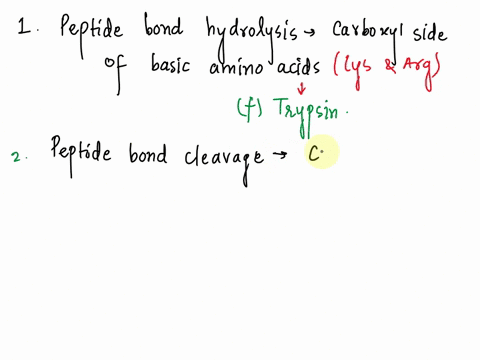 1. Peptide bond hydrolysis → Carboxyl side
of basic amino acids (Lys & Arg)
↓
(f) Trypsin.
2. Peptide bond cleavage → C